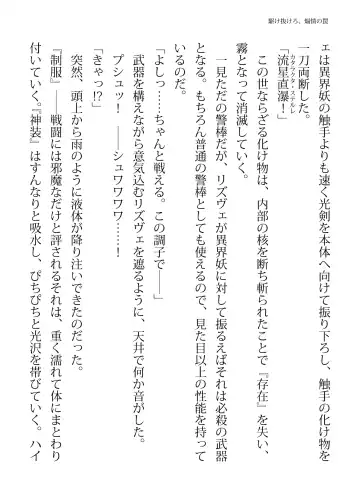 駆け抜けろ、煽情の罠
ェは異界妖の触手よりも速く光剣を本体へ向けて振り下ろし、触手の化け物を
一刀両断した。
「流星直瀑！」
この世ならざる化け物は、内部の核を断ち斬られたことで『存在』を失い、
霧となって消滅していく。
一見ただの警棒だが、リズヴェが異界妖に対して振るえばそれは必殺の武器
となる。もちろん普通の警棒としても使えるので、見た目以上の性能を持って
いるのだ。
「よしっ……ちゃんと戦える。この調子で――」
武器を構えながら意気込むリズヴェを遮るように、天井で何か音がした。
プシュッ！　――シュワワワワ……！
「きゃっ!?」
突然、頭上から雨のように液体が降り注いできたのだった。
『制服』――戦闘には邪魔なだけと評されるそれは、重く濡れて体にまとわり
付いていく。『神装』はすんなりと吸水し、ぴちぴちと光沢を帯びていく。ハイ
6